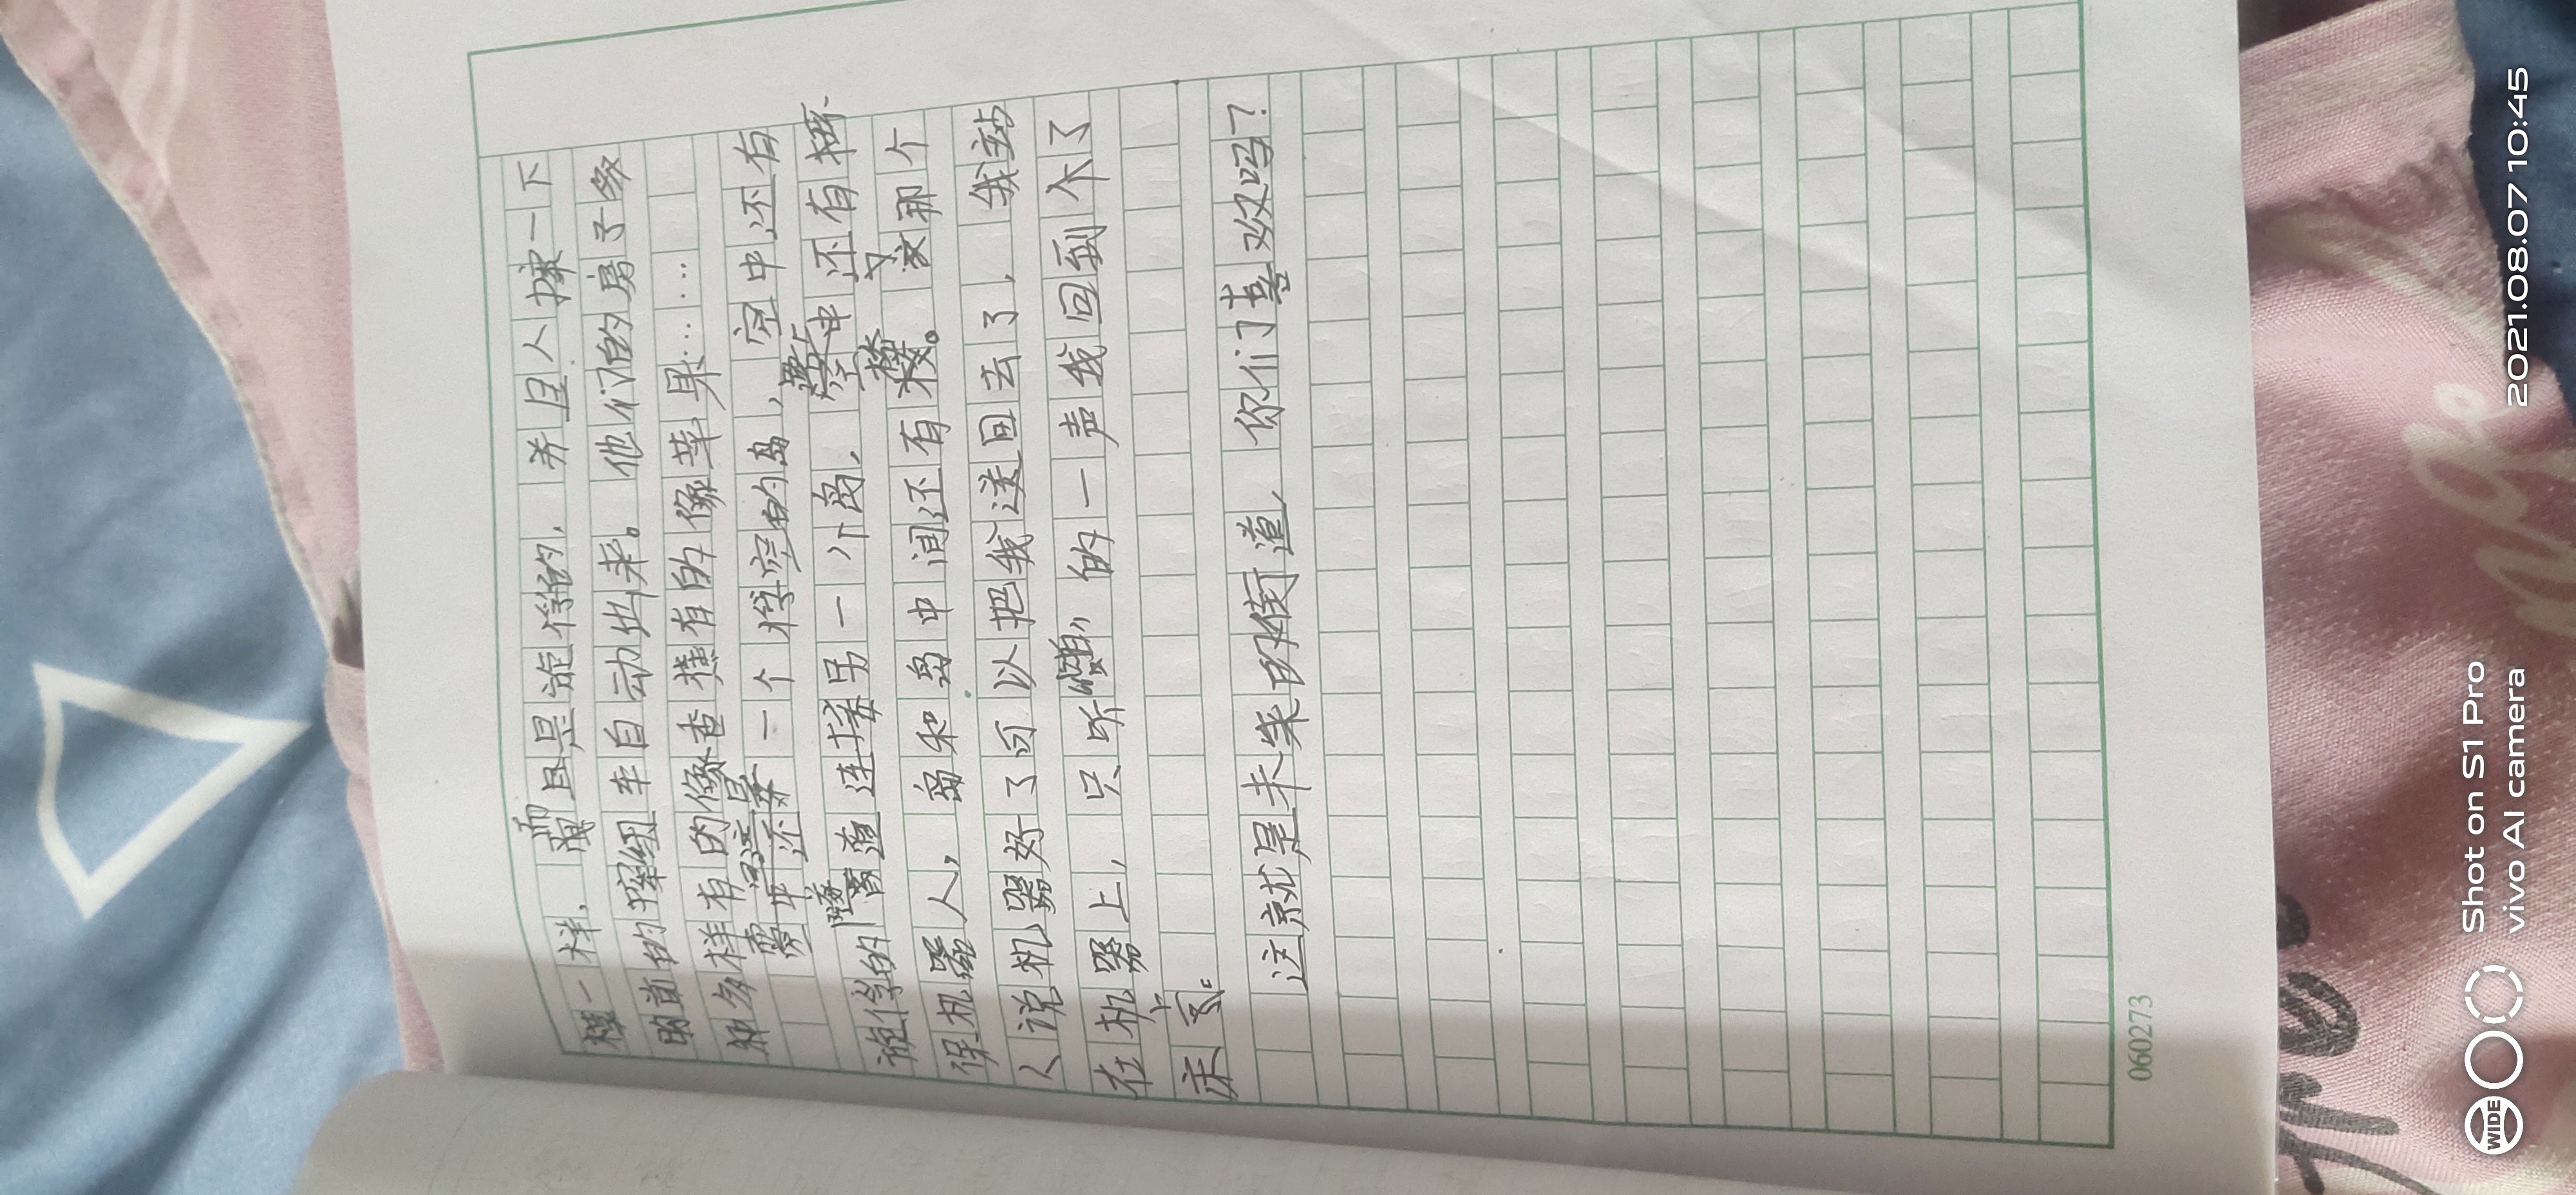 楼一样，而且是旋转的，并且人按一下
的按纽车自动出来。他们的房子多
种多样有的像香蕉有的像苹果……
空中还一个悬空的岛，空中还有
旋转的隧道连接另一个岛，空中还有环
保机器人，岛和岛中间还有楼。那个
人说机器好了可以把我送回去了，我站
在机器上，只听“的一声我回到了
床上。
这就是未来的街道，你们喜欢吗？
060273
WIDE
Shot on S1 Pro
vivo AI camera
2021.08.07 10:45